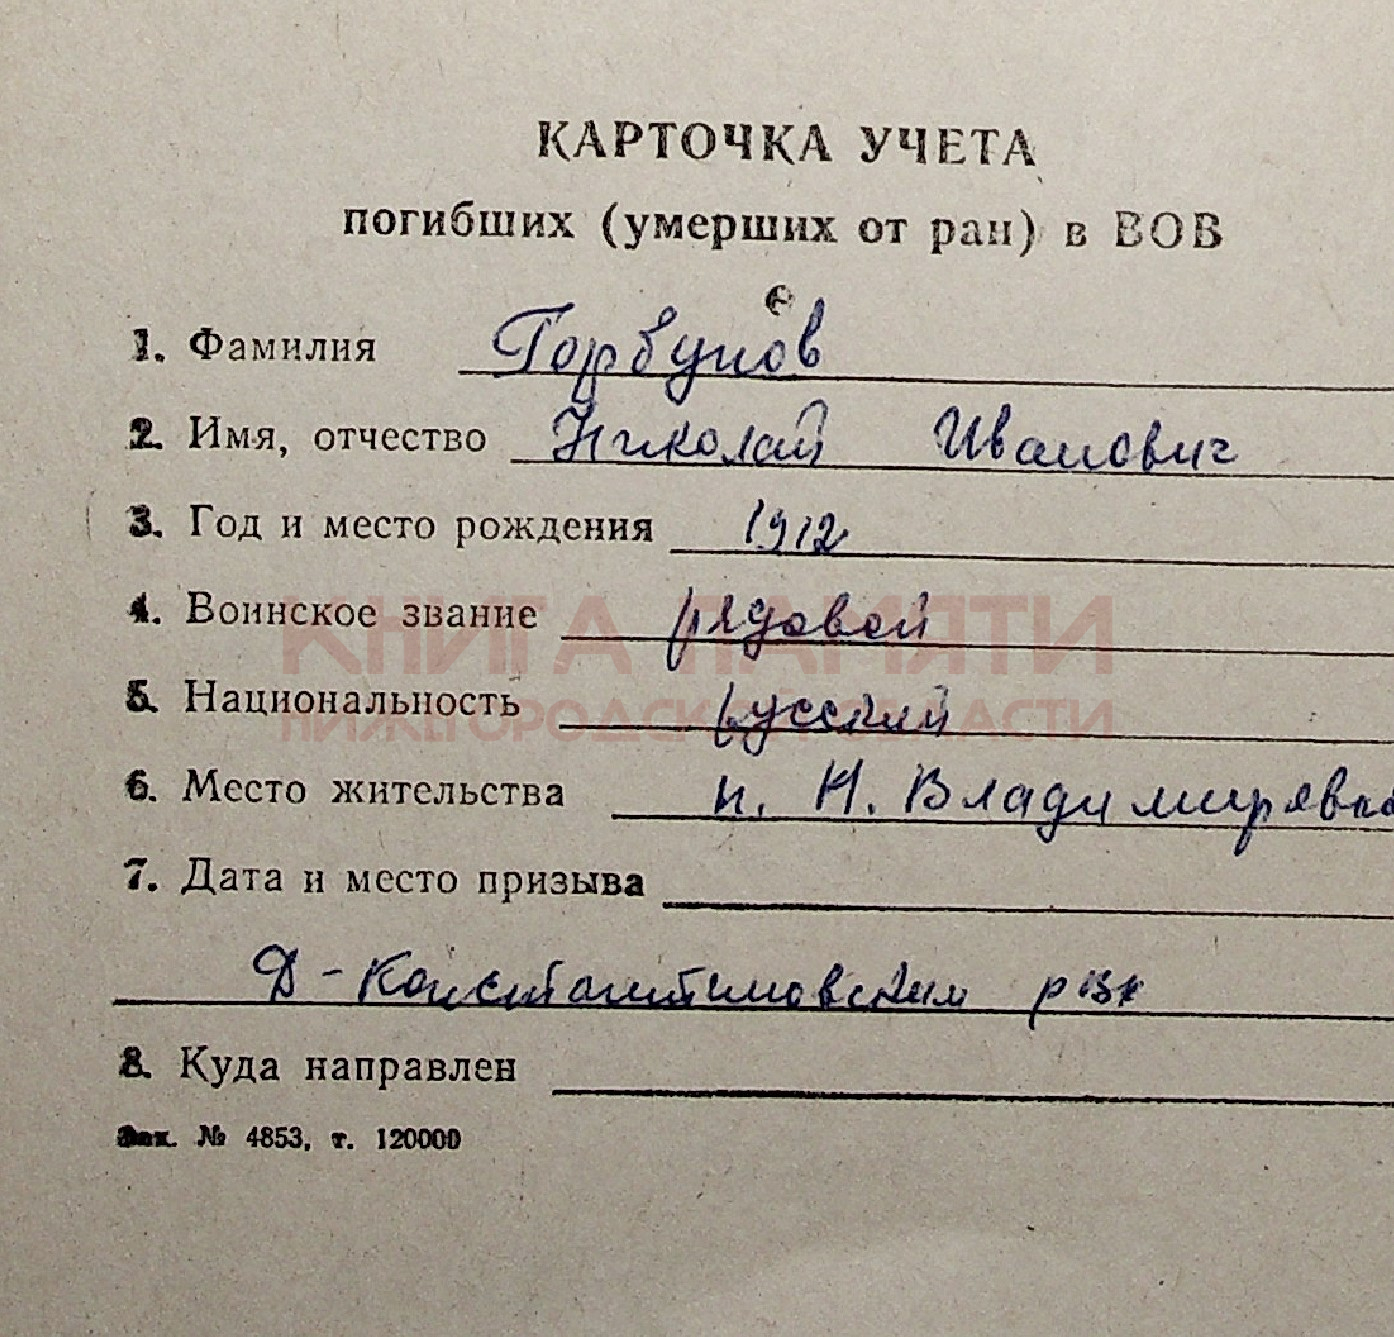 КАРТОЧКА УЧЕТА
погибших (умерших от ран) в ВОВ
е
1. Фамилия Горбунов
2. Имя, отчество Николай Иванович
3. Год и место рождения 1912
4. Воинское звание рядовой
КНИГА ПАМЯТИ
5. Национальность русский
НИЖЕГОРОДСКОЙ ОБЛАСТИ
6. Место жительства н. Н. Владимировка
7. Дата и место призыва
Д-Константиновским рвк
8. Куда направлен
Зак. № 4853, т. 120000